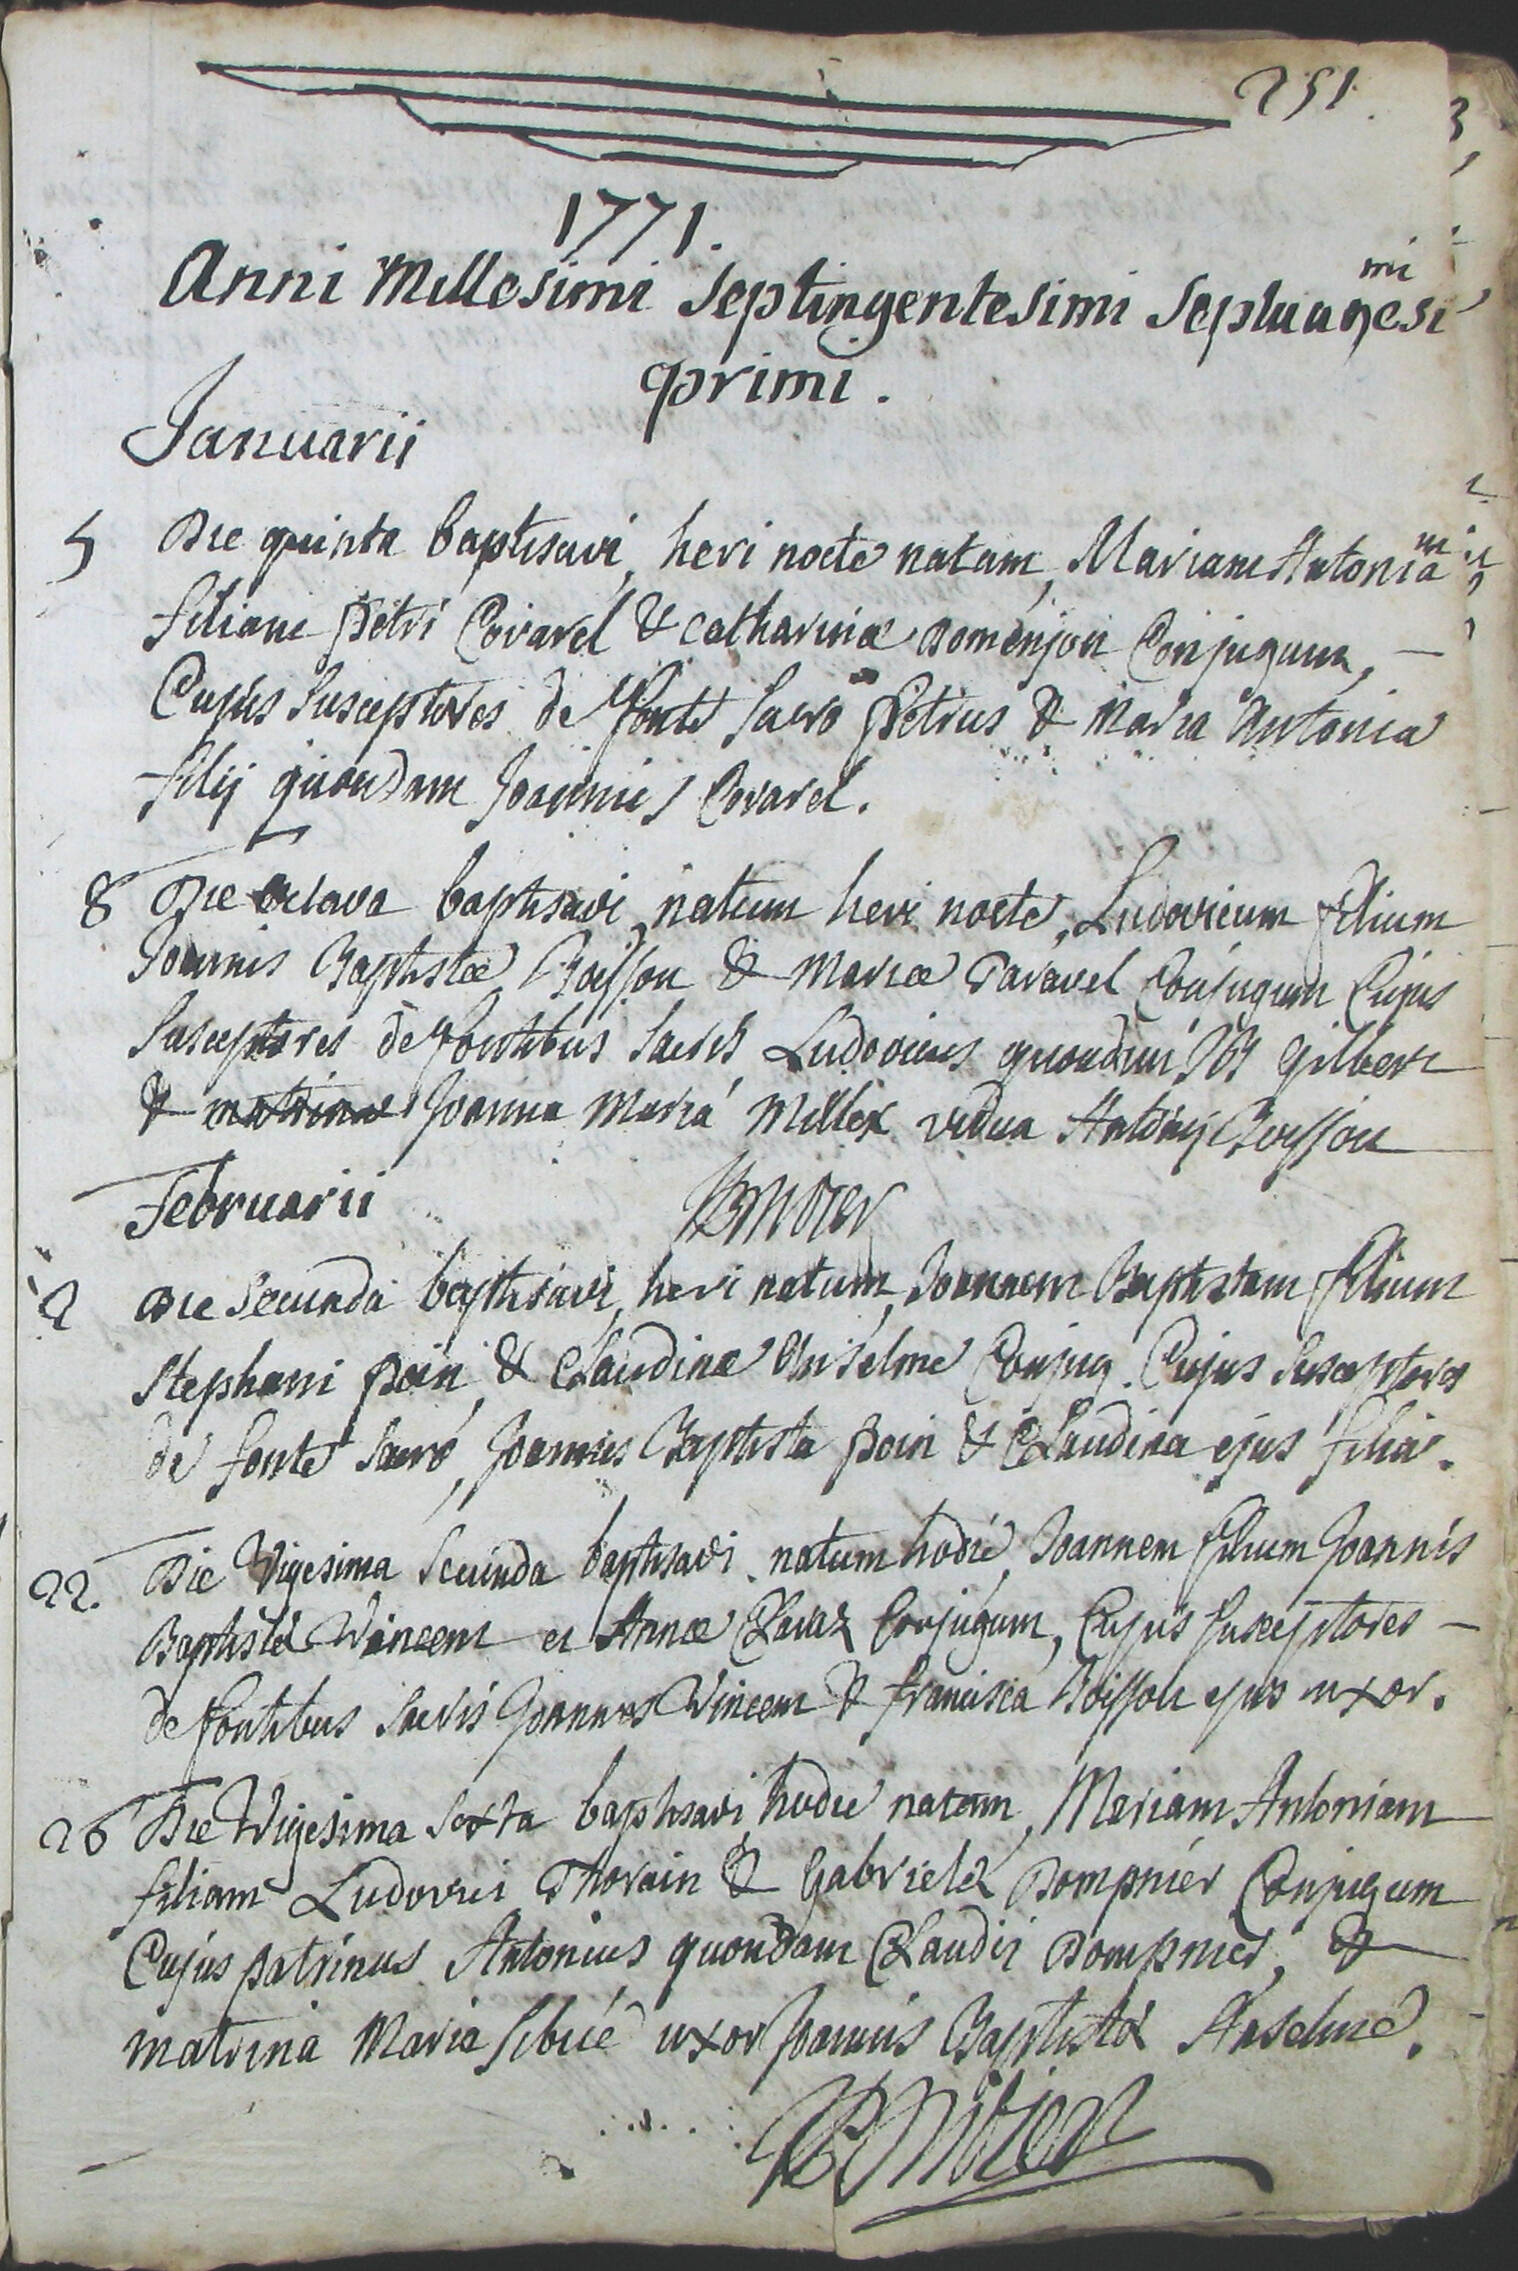 251.
1771.
Anni Millesimi Septingentesimi Septuagesimi
primi.
Januarii
5 Die quinta baptisavi, heri nocte natam, Mariam Antoniam
filiam Petri Covarel & Catharinæ Domenjon Conjugum, -
Cujus Susceptores de fonte Sacro Petrus & Maria Antonia
filij quondam Joannis Covarel.
8 Die octava baptisavi, natum heri nocte, Ludovicum filium
Joannis Baptistæ Boisson & Mariæ Taravel Conjugum Cujus
Susceptores de fontibus Sacris Ludovicus quondam Gilbert
& Joanna Maria Millex vidua Antonij Boisson
Februarii
2 Die Secunda baptisavi, heri natum, Joannem Baptistam filium
Stephani Poin, & Claudinæ Anselme Conjug. Cujus Susceptores
de fonte Sacro, Joannes Baptista Poin & Claudina ejus filia.
22. Die Vigesima Secunda baptisavi natum hodie, Joannem filium Joannis
Baptistæ Vincent et Annæ Claraz Conjugum, Cujus Susceptores -
de fontibus Sacris Joannes Vincent & francisca Boisson ejus uxor.
26 Die Vigesima Sexta baptisavi hodie natam, Mariam Antoniam
filiam Ludovici Thorain & Gabrielæ Dompnier Conjugum
Cujus patrinus Antonius quondam Claudii Dompnier, &
matrina Maria Sibué uxor Joannis Baptistæ Anselme.